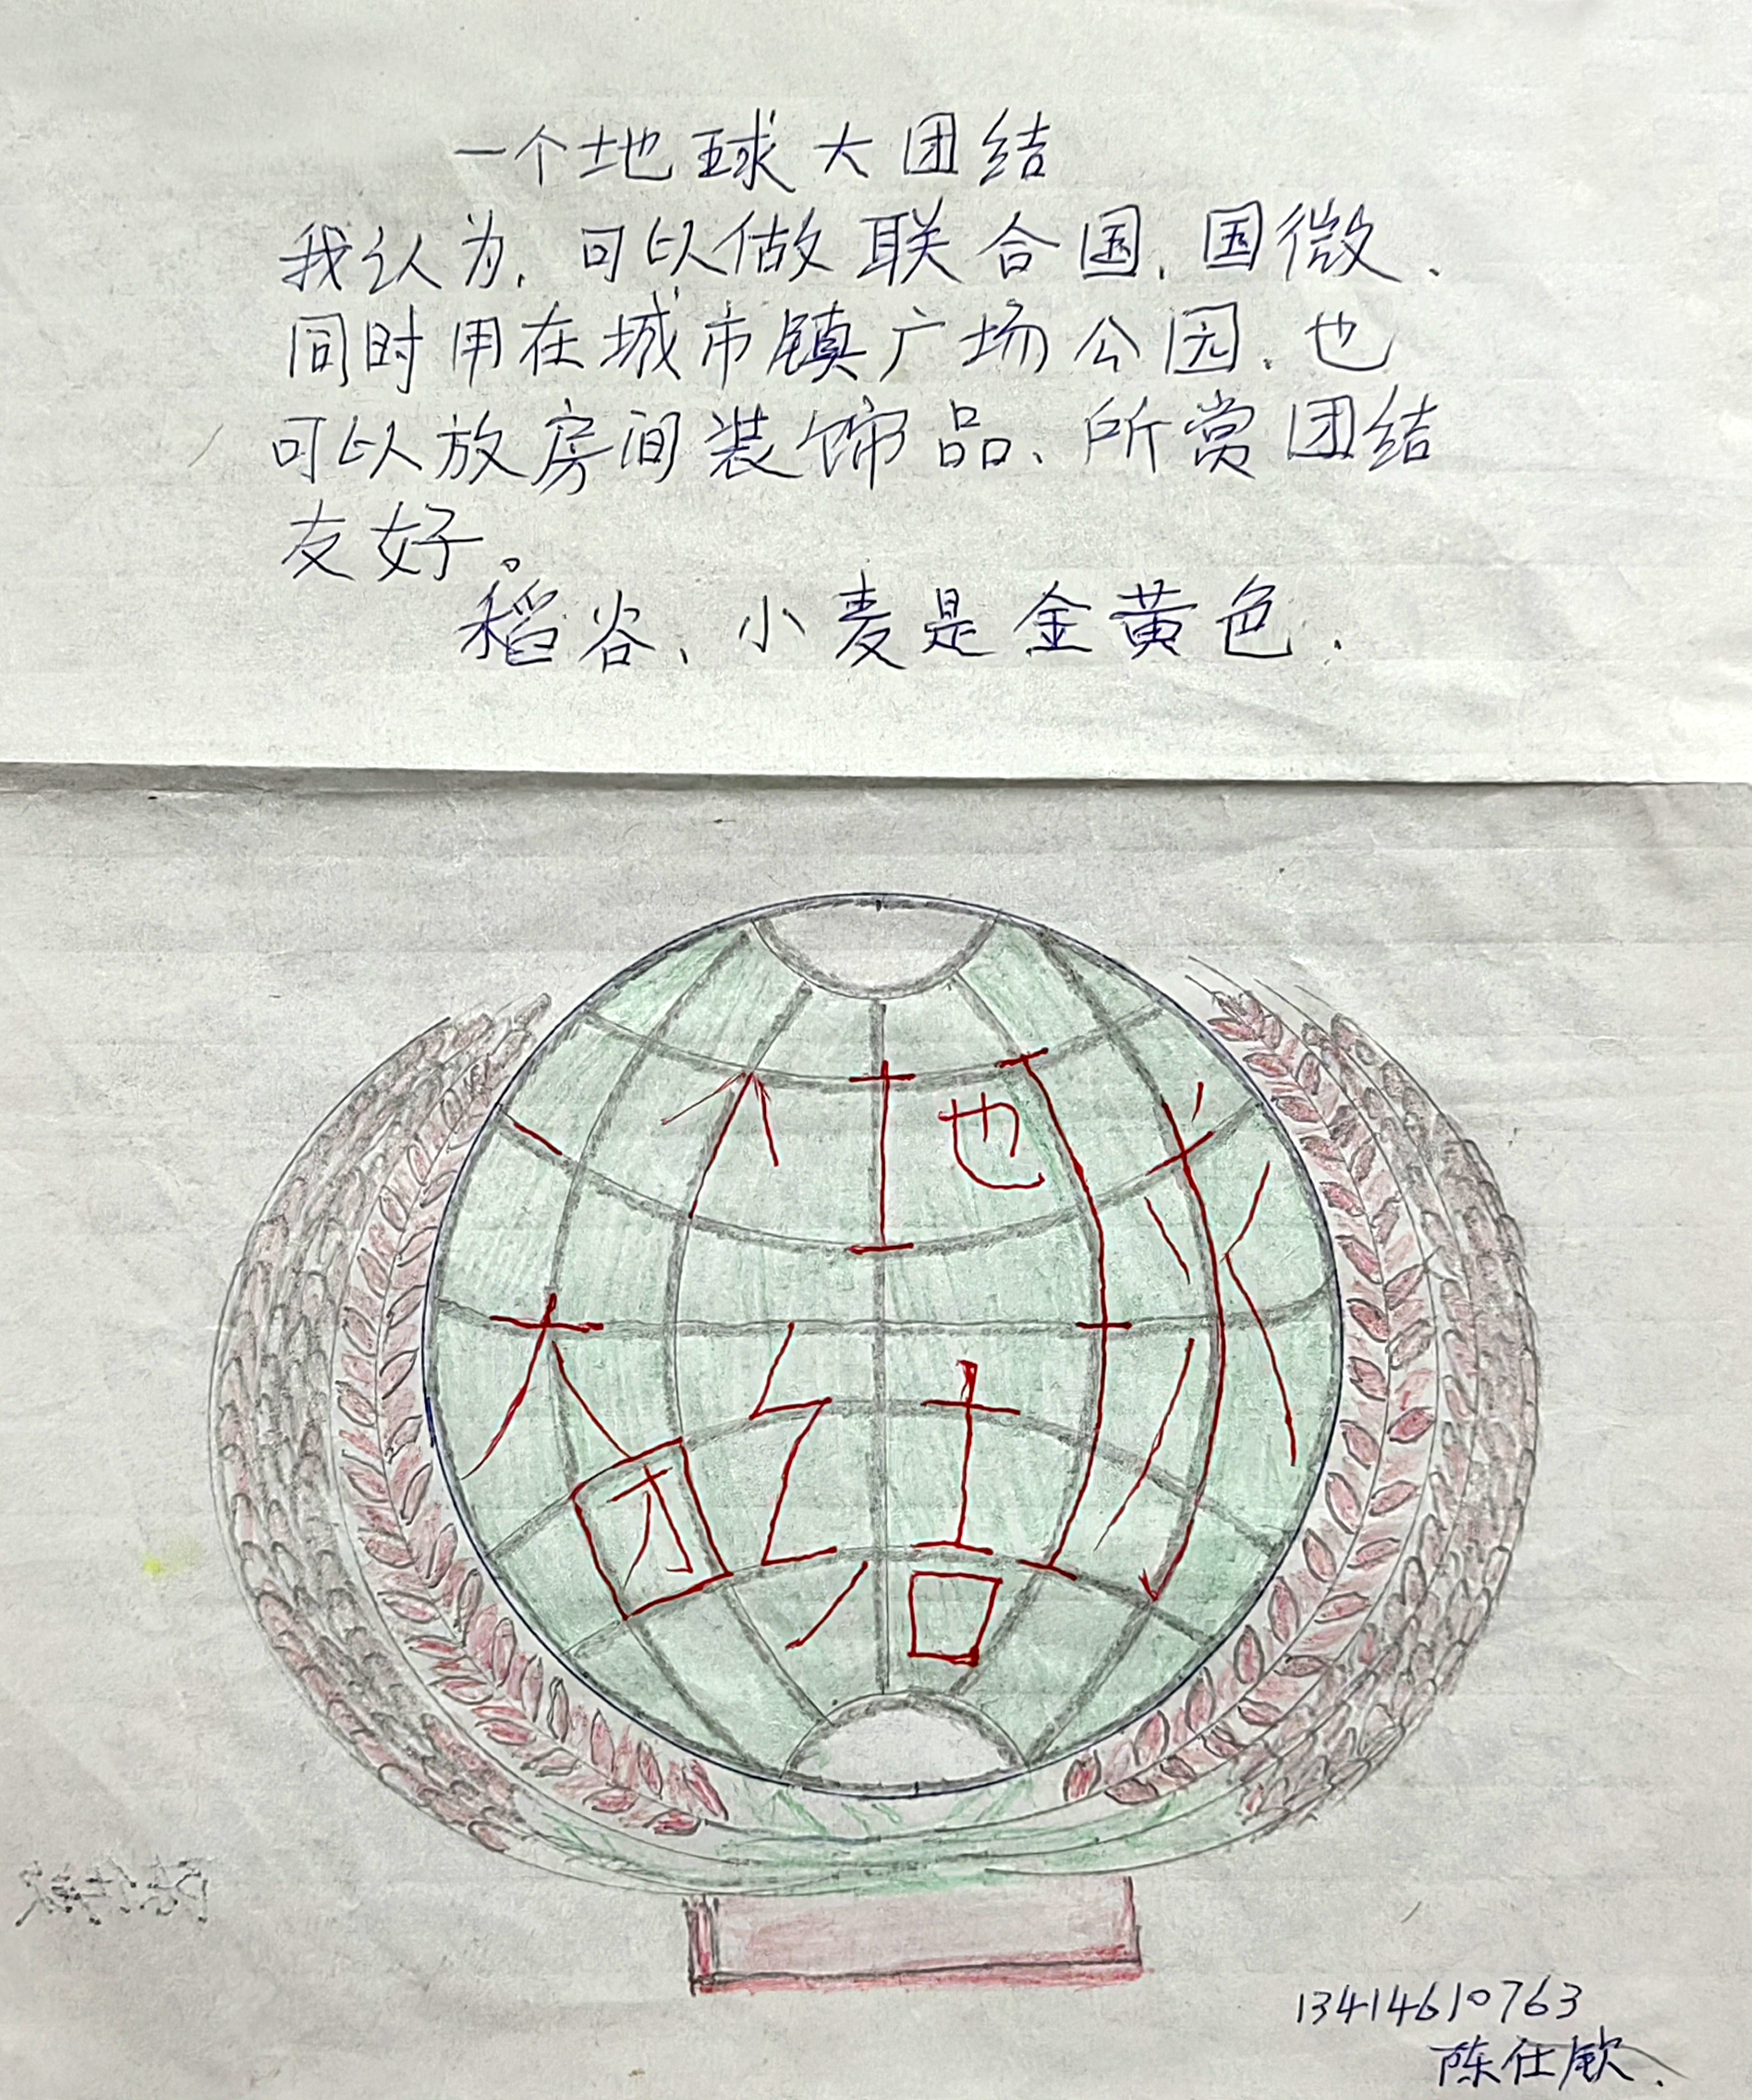 一个地球大团结
我认为,可以做联合国,国微.
同时用在城市镇广场公园.也
可以放房间装饰品、所赏团结
友好。
稻谷、小麦是金黄色.
一个地球
大团结
13414610763
陈仕欽.